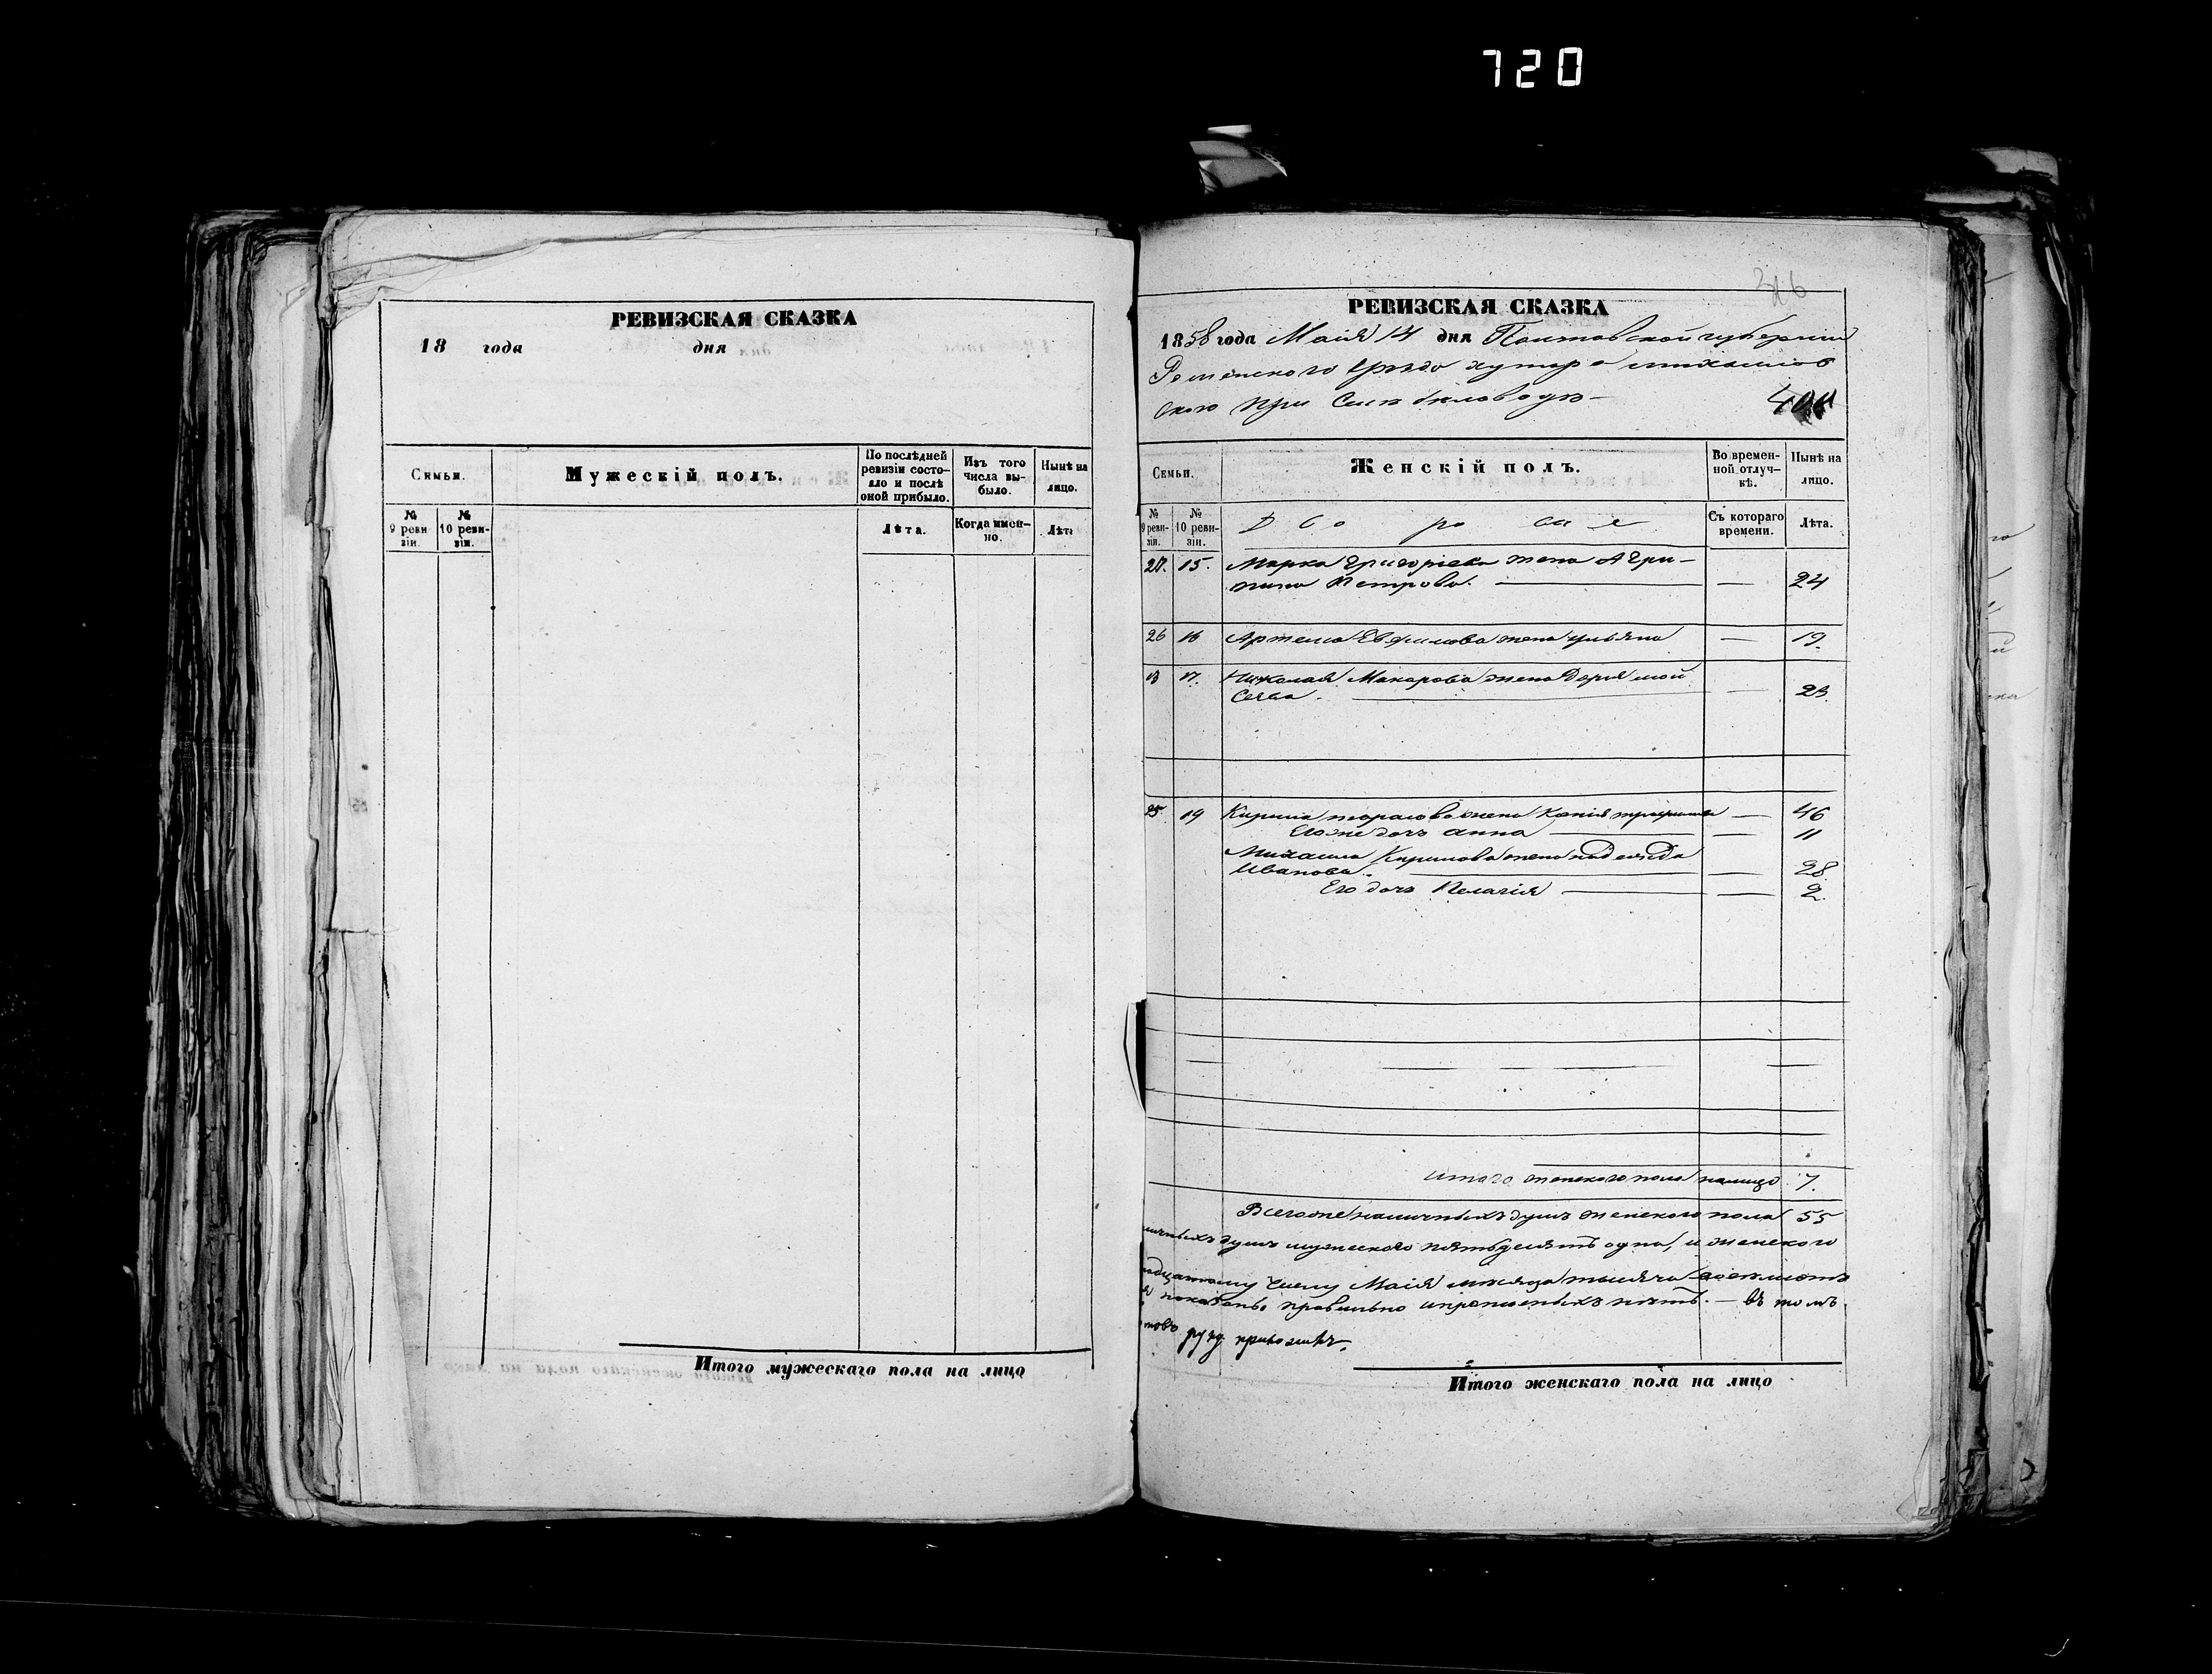 720
РЕВИЗСКАЯ СКАЗКА
18 года дня
Семьи.
Мужескій полъ.
По послѣдней ревизіи состояло и послѣ оной прибыло.
Изъ того числа выбыло.
Нынѣ на лицо.
№ 9 реви зіи.
№ 10 ревизіи.
Лѣта.
Когда именно.
Лѣта
Итого мужескаго пола на лицо
РЕВИЗСКАЯ СКАЗКА
1858 года Маія 14 дня Полтавской губерніи
Роменского уѣзда хутора михайлов
ского при селѣ
Семьи.
Женскій полъ.
Во временной отлучкѣ.
Нынѣ на лицо.
№ 9 ревизіи.
№ 10 ревизіи.
Дворовые
Съ котораго времени.
Лѣта.
15. Марка Григоріева жена Агри-
пина Петрова. — — 24
26 16 Артема Евфимова жена ульяна — 19.
17. Николая Макарова жена Дарія мой
сеева. — — 23.
25 19 Кирила тарасова жена — 46
Его же дочь анна — — 11
Михаила Кирилова жена надежда
Иванова. — — 28
Его дочь Пелагія — — 2.
итого женского пола налицо 7.
Всего же наличныхъ душъ женского пола 55
душъ мужеского пятьдесятъ одна, и женского
числу Маія мѣсяца тысяча восемьсотъ
показаны правильно и прописныхъ нѣтъ. — въ томъ
руку приложилъ.
Итого женскаго пола на лицо